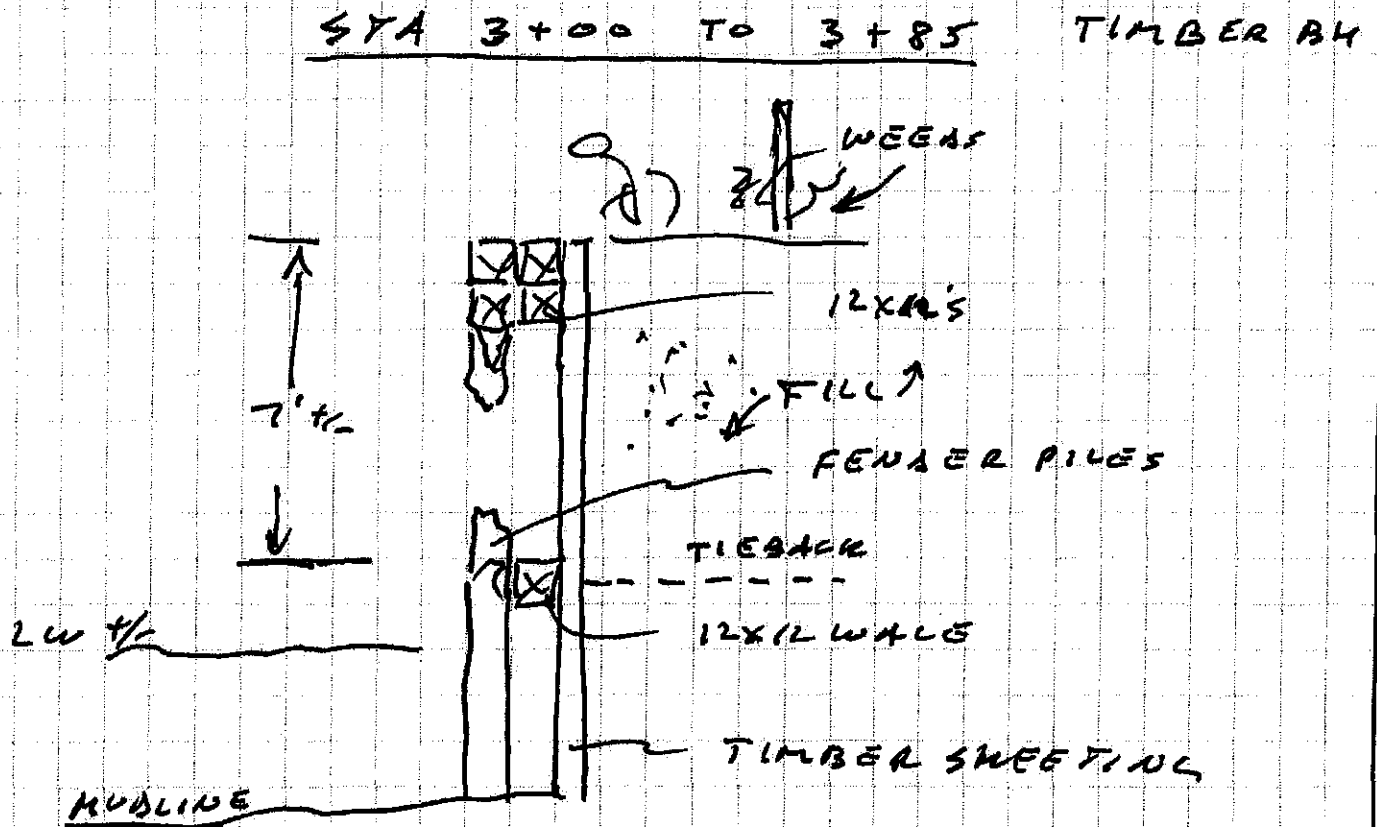 STA 3+00 TO 3+85 TIMBER BH
WEEDS
12X12'S
7' +/-
FILL
FENDER PILES
TIEBACK
12X12 WALE
LW +/-
TIMBER SHEETING
MUDLINE